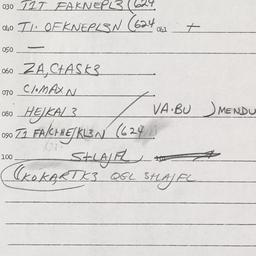 030 T2T FAKNEPL3 (624
040 T1. OFKNEPLSN (624 +
050 —
060 ZA,CtASK3
070 CI.MAXN
080 HE/KA/3 VA.BU ) MENDU
090 T1 (624
100 StLAJFL
(KOKARTK3 OGL StLAJFL